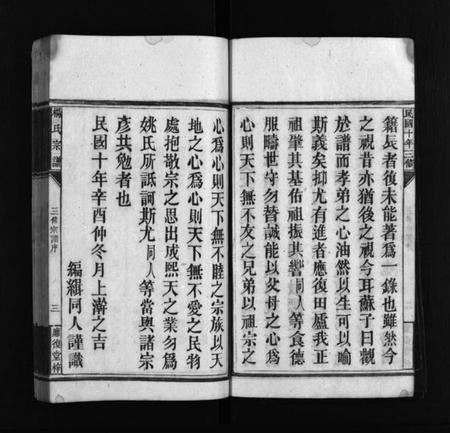 民國十年三修
籍長者復未能著爲一錄也雖然今
之視昔亦猶後之視今耳蘇子曰觀
於譜而孝弟之心油然以生可以喻
斯義矣抑尤有進者應復田廬我正
祖肇其基佑祖振其響同人等食德
服疇世守勿替誠能以父母之心爲
心則天下無不友之兄弟以祖宗之
心爲心則天下無不睦之宗族以天
地之心爲心則天下無不愛之民物
處抱敬宗之思出成熙天之業勿爲
姚氏所詆訶斯尤同人等當與諸宗
彥共勉者也
民國十年辛酉仲冬月上澣之吉
編緝同人謹識
楊氏宗譜
三修宗譜序
三
復堂梓